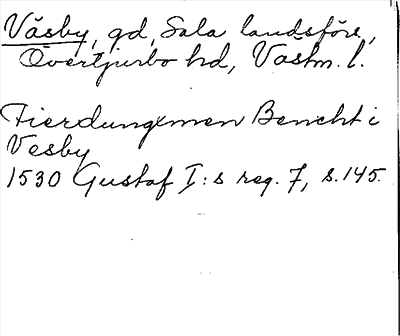 Väsby, gd, Sala landsförs.,
Övertjurbo hd, Vastm. l.
Fierdungxmen Bencht i
Vesby
1530 Gustaf I:s reg. 7, s. 145.